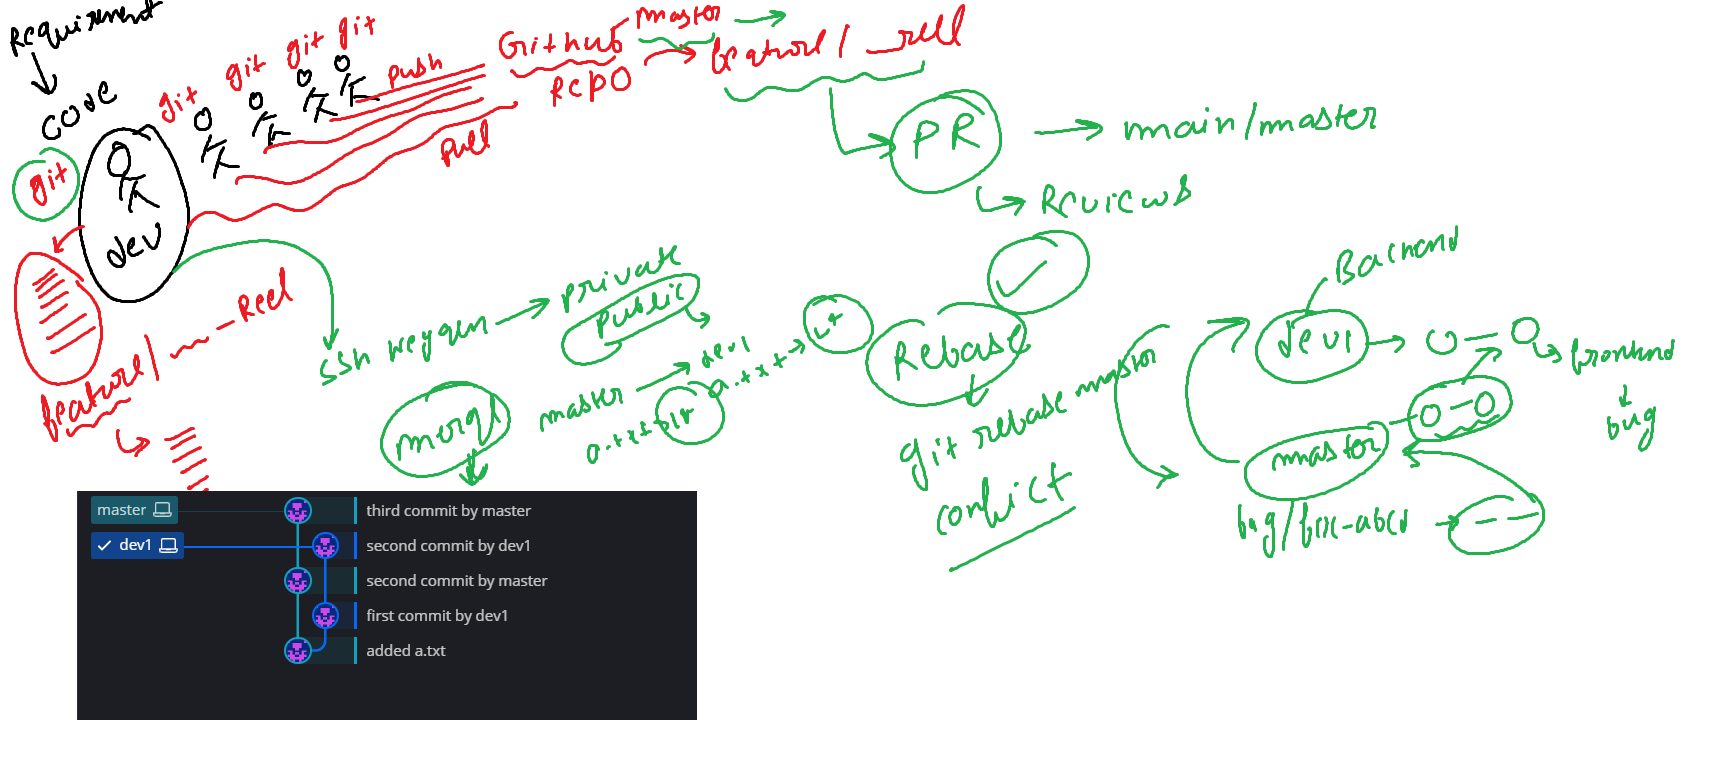 Requirement
code
git
dev
git
git
git
git
push
pull
Github
Repo
master
feature/
reel
PR
main/master
Reviews
feature/
Reel
ssh keygen
private
public
merge
master
dev1
a.txt
a.txt
Rebase
git rebase master
conflict
Backend
dev1
frontend
bug
master
bug/fix-abcd
master
third commit by master
dev1
second commit by dev1
second commit by master
first commit by dev1
added a.txt